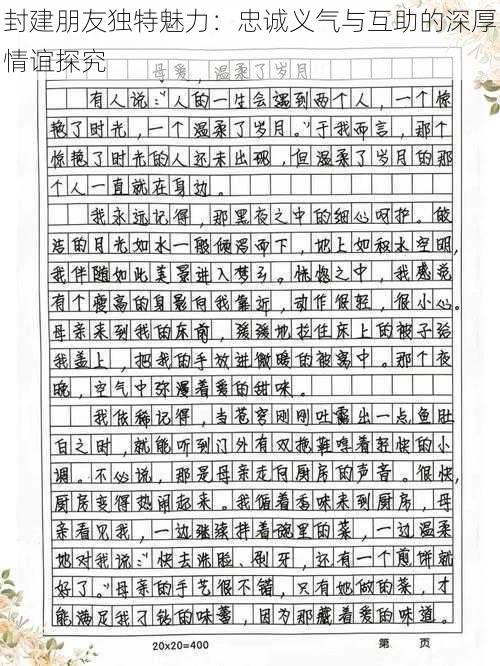 封建朋友独特魅力：忠诚义气与互助的深厚
情谊探究
母爱，温柔了岁月
有人说：“人的一生会遇到两个人，一个惊
艳了时光，一个温柔了岁月。”于我而言，那个
惊艳了时光的人还未出现，但温柔了岁月的那
个人一直就在身边。
我永远记得，那黑夜之中的细心呵护。皎
洁的月光如水一般倾泻而下，地上如积水空明，
我伴随如此美景进入梦乡。恍惚之中，我感觉
有个瘦高的身影向我靠近，动作很轻，很小心。
母亲来到我的床前，缓缓地拉住床上的被子给
我盖上，把我的手放进微暖的被窝中。那个夜
晚，空气中弥漫着爱的甜味。
我依稀记得，当苍穹刚刚吐露出一点鱼肚
白之时，就能听到门外有双拖鞋哼着轻快的小
调。不必说，那是母亲走向厨房的声音。很快，
厨房变得热闹起来。我循着香味来到厨房，母
亲看见我，一边继续拌着碗里的菜，一边温柔
地对我说：“快去洗脸、刷牙，还有一个煎饼就
好了。”母亲的手艺很不错，只有她做的菜，才
能满足我刁钻的味蕾，因为那藏着爱的味道。
20×20=400
第 页